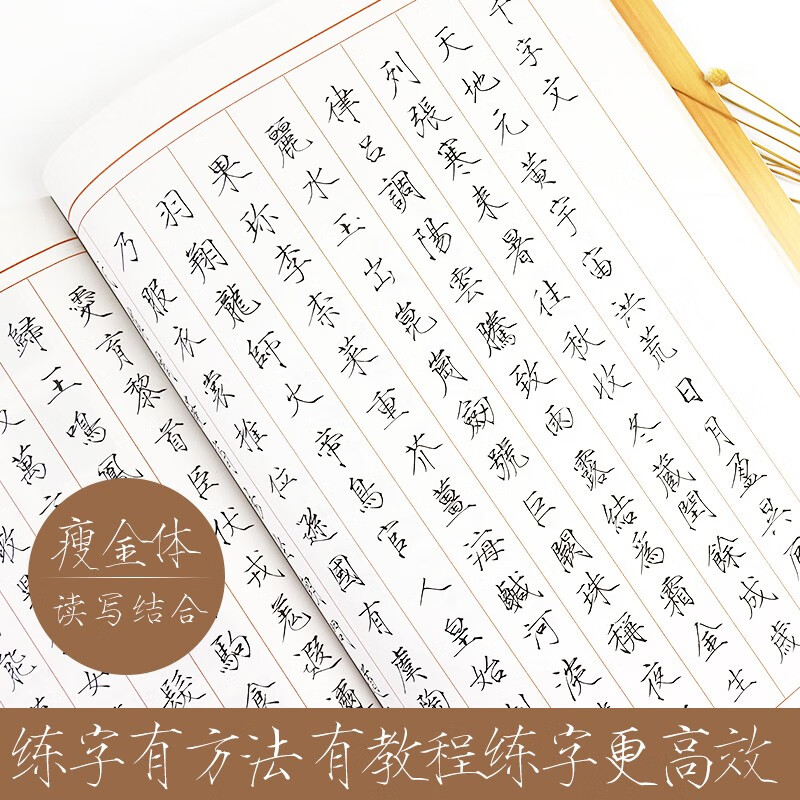 千字文
天地元黃宇宙洪荒日月盈昃
列張寒来暑往秋收冬藏閏餘成歲
律呂調陽雲騰致雨露結為霜金生
麗水玉出崑崗劍號巨闕珠稱夜
果珍李柰菜重芥薑海鹹河淡
羽翔龍師火帝鳥官人皇始制
乃服衣裳推位遜國有虞陶
愛育黎首臣伏戎羌遐邇
歸王鳴鳳駒食
萬髮
女
瘦金体
读写结合
练字有方法有教程练字更高效